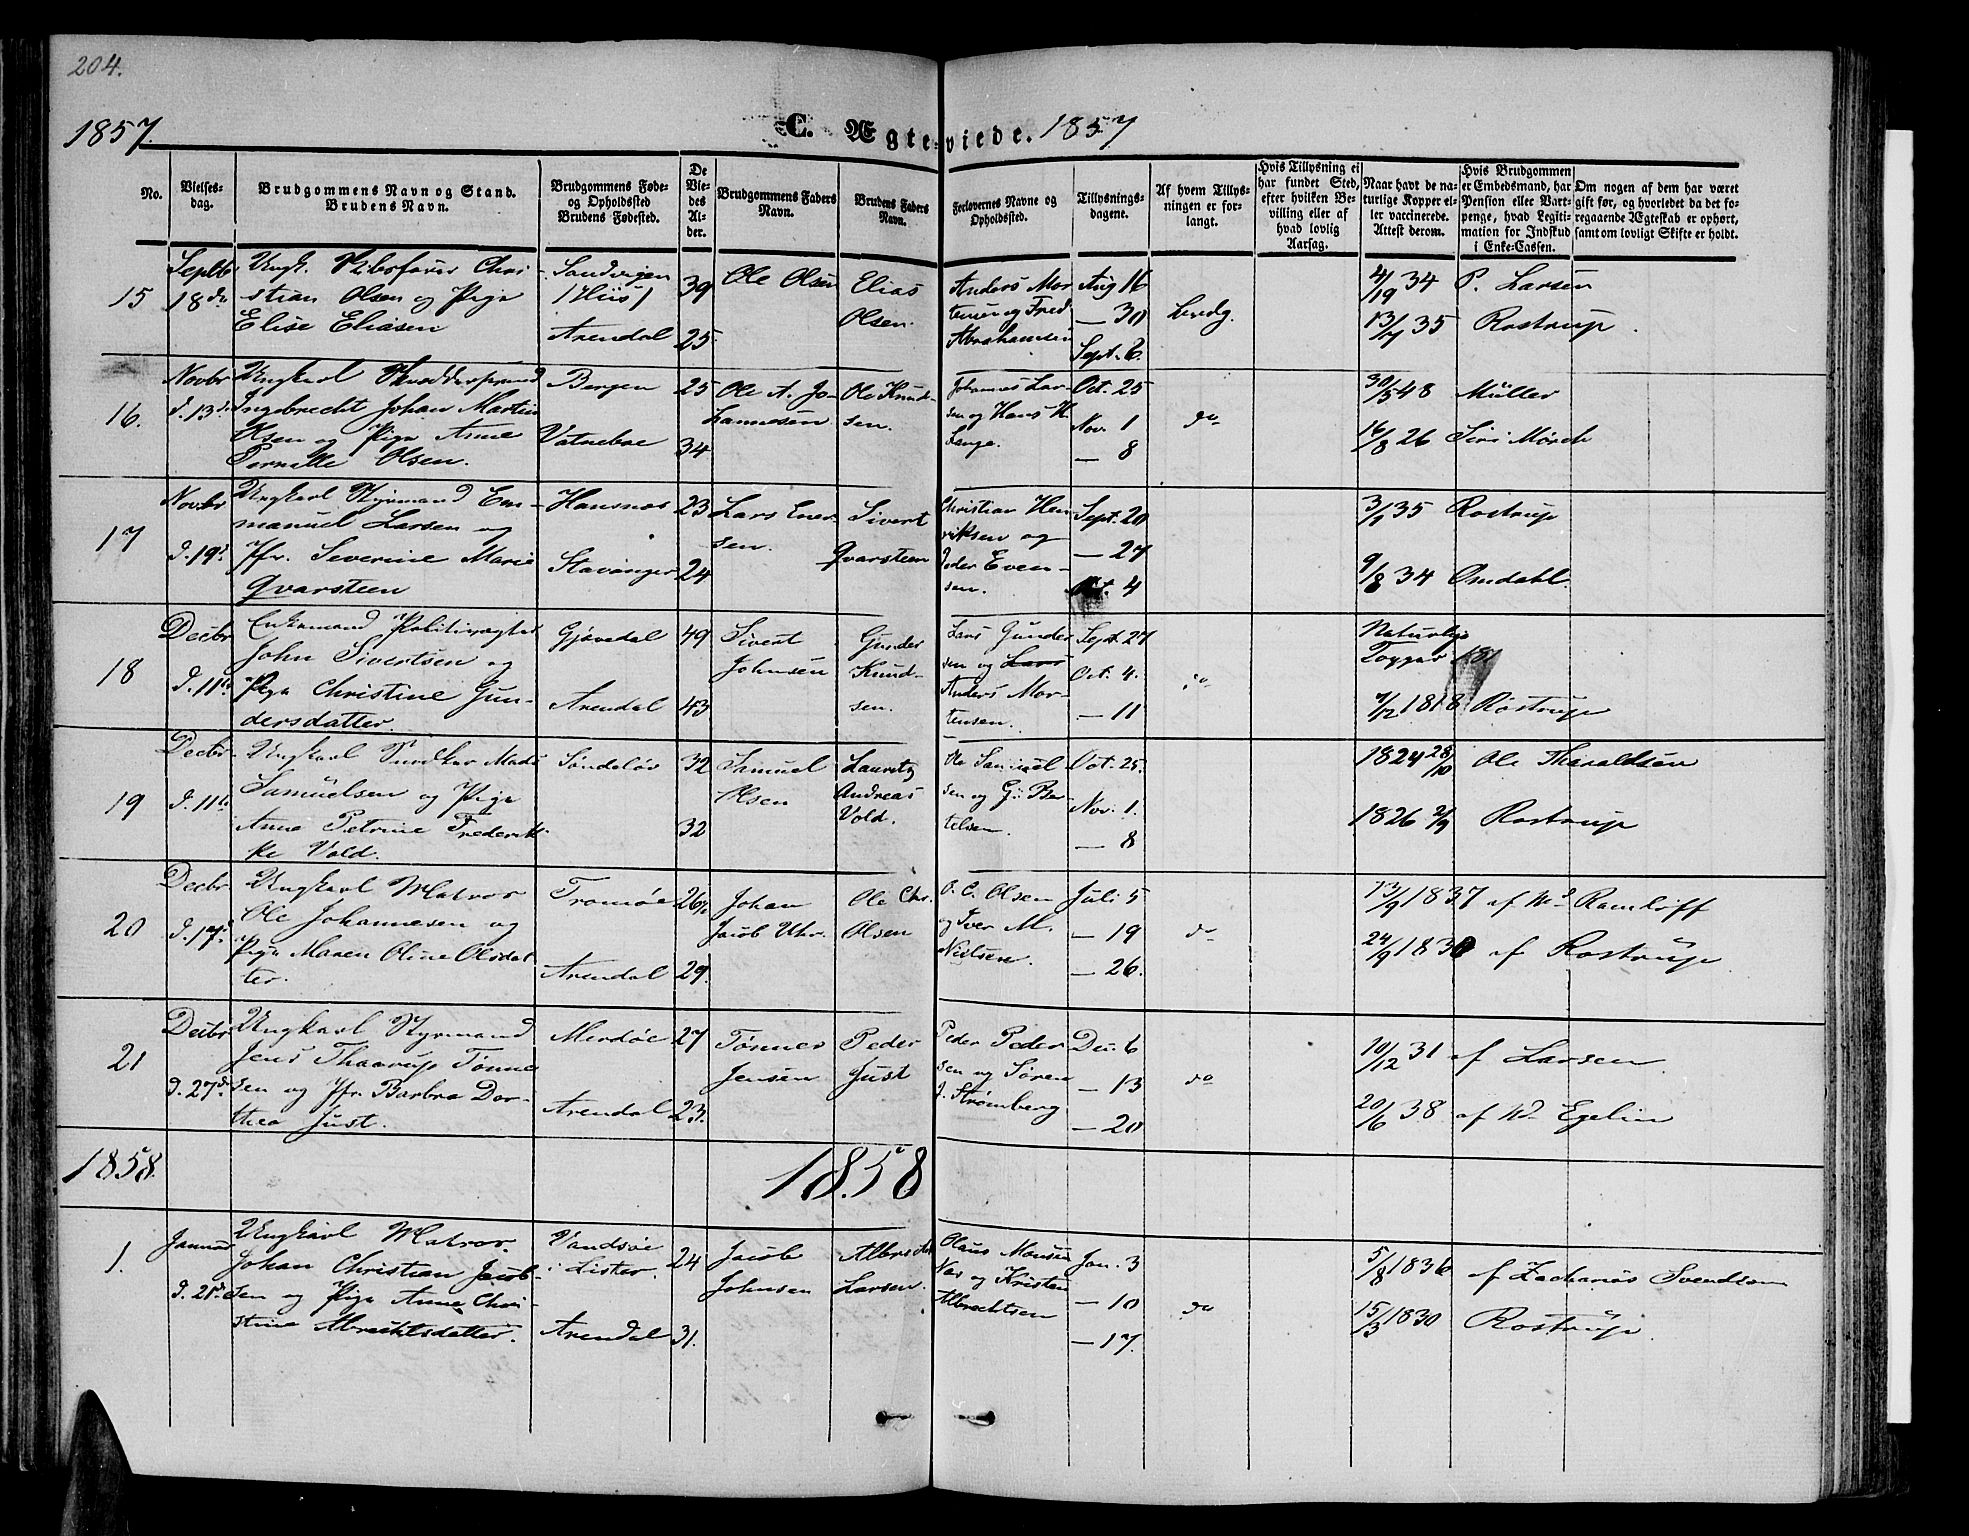 204.
1857.
C. Ægteviede. 1857
No.
Vielses-
dag.
Brudgommens Navn og Stand.
Brudens Navn.
Brudgommens Føde-
og Opholdssted
Brudens Fødested.
De
Vie-
des
Al-
der.
Brudgommens Faders
Navn.
Brudens Faders
Navn.
Forlovernes Navne og
Opholdssted.
Tillysnings-
dagene.
Af hvem Tillys-
ningen er for-
langt.
Hvis Tillysning ei
har fundet Sted,
efter hvilken Be-
villing eller af
hvad lovlig
Aarsag.
Naar havt de na-
turlige Kopper el-
ler vaccinerede.
Attest derom.
Hvis Brudgommen
er Embedsmand, har
Pension eller Vart-
penge, hvad Legiti-
mation for Indskud
i Enke-Cassen.
Om nogen af dem har været
gift før, og hvorledet da det fo-
regaaende Ægteskab er ophørt,
samt om lovligt Skifte er holdt.
15
Septb
18de
Ungk. Chri-
stian Olsen og Pige
Elise Eliasen
Sandvigen
/Hiis/
Arendal
39
25
Ole Olsen
Elias
Olsen.
Anders Mor
tensen og Fred
Abrahamsen
Aug 16
— 30
Sept. 6.
4/19 34 P. Larsen
13/7 35 Rostrup.
16.
Novbr
d. 13de
Ungkarl Skræddersvend
Ingebrecht Johan Martin
Olsen og Pige Anne
Pernille Olsen.
Bergen
25
34
Ole A. Jo-
hannesen
Ole Knud-
sen.
Johannes Lar-
sen og Hans H.
Lange.
Oct. 25
Nov. 1
— 8
do
30/5 48 Müller
16/8 26 Siri Mörch
17
Novbr
d. 19de
Ungkarl Styrmand Em-
manuel Larsen og
Jfr. Severine Marie
Qvarsteen
Stavanger
23
24
Lars Ener-
sen.
Sivert
Qvarsteen
Christian Hen
riksen og
Peder Even-
sen.
Sept. 20
— 27
Oct. 4
3/9 35 Rostrup
9/8 34 Omdahl.
18
Decbr
d. 11te
Enkemand Politivægter
John Sivertsen og
Pige Christine Gun-
dersdatter.
Gjøvedal
Arendal
49
43
Sivert
Johnsen
Gunder
Knud-
sen.
Lars Gunder
sen og Lars
Anders Mor-
tensen.
Sept. 27
Oct. 4.
— 11
do
Naturlige
Kopper
7/12 1818 Rostrup
19
Decbr
d. 11te
Ungkarl Snedker Mads
Samuelsen og Pige
Anne Petrine Frederik-
ke Vold.
Søndeløv
32
32
Samuel
Olsen
Lauritz
Andreas
Vold.
Ole Samuel
sen og G. Ber
telsen.
Oct. 25.
Nov. 1.
— 8
1824 28/10 Ole Tharaldsen
1826 2/9 Rostrup
20
Decbr
d. 17de
Ungkarl Matros
Ole Johannesen og
Pige Maren Oline Olsdat
ter.
Tromøe
Arendal
26½
29.
Johan
Jacob Uhr.
Ole Chr.
Olsen
O. C. Olsen
og Iver M.
Nielsen.
Juli 5
— 19
— 26.
do
13/9 1837 af Md Ramløff
24/9 1830 af Rostrup.
21
Decbr
d. 27de
Ungkarl Styrmand
Jens Thaarup Tønne
sen og Jfr. Barbra Dor-
thea Just.
Merdøe
Arendal
27
23.
Tønnes
Jensen
Peder
Just
Peder Peder
sen og Søren
J. Strømberg
Dec. 6
— 13
— 20
do
10/12 31 af Larsen.
20/6 38 af Md Egelin
1858.
1858
1.
Januar
d. 21de
Ungkarl Matros.
Johan Christian Jacob-
sen og Pige Anne Chri-
stine Albrechtsdatter.
Vandsøe
i Lister.
Arendal
24
31.
Jacob
Johnsen
Albrecht
Larsen.
Olaus Monsen
Næs og Kristen
Albrechtsen
Jan. 3
— 10
— 17.
do
5/8 1836 af Zacharias Svendsen
15/3 1830 Rostrup.